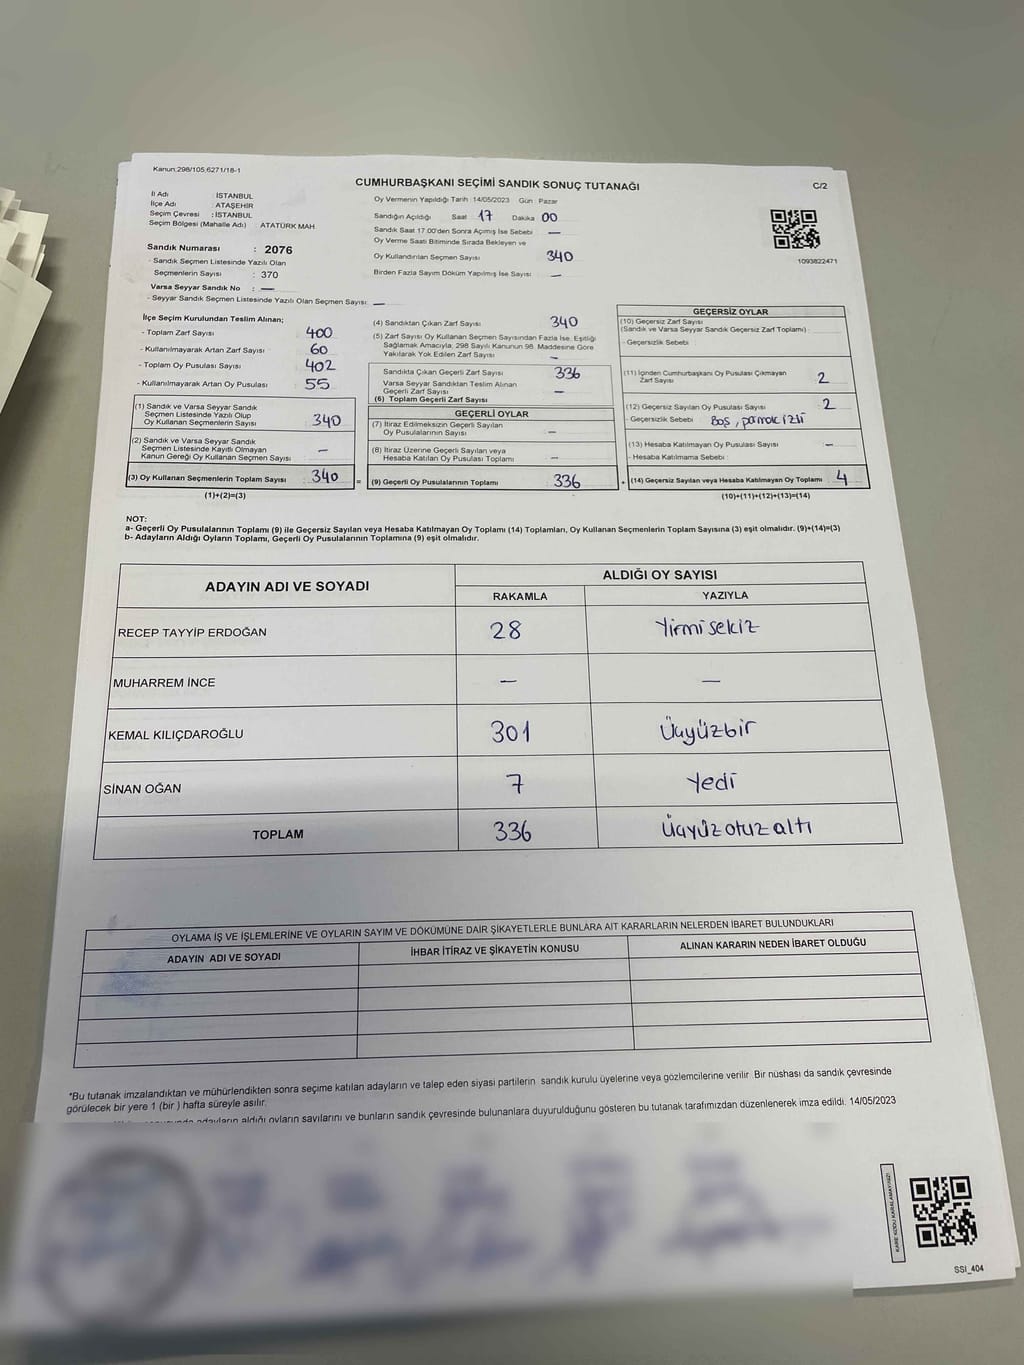 Kanun:298/105,6271/18-1
CUMHURBAŞKANI SEÇİMİ SANDIK SONUÇ TUTANAĞI
C/2
İl Adı : İSTANBUL
İlçe Adı : ATAŞEHİR
Seçim Çevresi : İSTANBUL
Seçim Bölgesi (Mahalle Adı) : ATATÜRK MAH
Sandık Numarası : 2076
- Sandık Seçmen Listesinde Yazılı Olan
Seçmenlerin Sayısı : 370
Varsa Seyyar Sandık No : —
- Seyyar Sandık Seçmen Listesinde Yazılı Olan Seçmen Sayısı : —
Oy Vermenin Yapıldığı Tarih :14/05/2023 Gün : Pazar
Sandığın Açıldığı Saat 17 Dakika 00
Sandık Saat 17.00'den Sonra Açımış İse Sebebi —
Oy Verme Saati Bitiminde Sırada Bekleyen ve
Oy Kullandırılan Seçmen Sayısı 340
Birden Fazla Sayım Döküm Yapılmış İse Sayısı : —
1093822471
İlçe Seçim Kurulundan Teslim Alınan;
- Toplam Zarf Sayısı : 400
- Kullanılmayarak Artan Zarf Sayısı : 60
- Toplam Oy Pusulası Sayısı : 402
- Kullanılmayarak Artan Oy Pusulası : 55
(1) Sandık ve Varsa Seyyar Sandık
Seçmen Listesinde Yazılı Olup
Oy Kullanan Seçmenlerin Sayısı : 340
(2) Sandık ve Varsa Seyyar Sandık
Seçmen Listesinde Kayıtlı Olmayan
Kanun Gereği Oy Kullanan Seçmen Sayısı : —
(3) Oy Kullanan Seçmenlerin Toplam Sayısı : 340 =
(1)+(2)=(3)
(4) Sandıktan Çıkan Zarf Sayısı : 340
(5) Zarf Sayısı Oy Kullanan Seçmen Sayısından Fazla İse, Eşitliği
Sağlamak Amacıyla, 298 Sayılı Kanunun 98. Maddesine Göre
Yakılarak Yok Edilen Zarf Sayısı : —
Sandıkta Çıkan Geçerli Zarf Sayısı : 336
Varsa Seyyar Sandıktan Teslim Alınan
Geçerli Zarf Sayısı : —
(6) Toplam Geçerli Zarf Sayısı
GEÇERLİ OYLAR
(7) İtiraz Edilmeksizin Geçerli Sayılan
Oy Pusulalarının Sayısı : —
(8) İtiraz Üzerine Geçerli Sayılan veya
Hesaba Katılan Oy Pusulası Toplamı : —
(9) Geçerli Oy Pusulalarının Toplamı : 336 +
GEÇERSİZ OYLAR
(10) Geçersiz Zarf Sayısı
(Sandık ve Varsa Seyyar Sandık Geçersiz Zarf Toplamı) :
- Geçersizlik Sebebi :
(11) İçinden Cumhurbaşkanı Oy Pusulası Çıkmayan
Zarf Sayısı : 2
(12) Geçersiz Sayılan Oy Pusulası Sayısı : 2
- Geçersizlik Sebebi : Boş, parmak izli
(13) Hesaba Katılmayan Oy Pusulası Sayısı : —
- Hesaba Katılmama Sebebi :
(14) Geçersiz Sayılan veya Hesaba Katılmayan Oy Toplamı : 4
(10)+(11)+(12)+(13)=(14)
NOT:
a- Geçerli Oy Pusulalarının Toplamı (9) ile Geçersiz Sayılan veya Hesaba Katılmayan Oy Toplamı (14) Toplamları, Oy Kullanan Seçmenlerin Toplam Sayısına (3) eşit olmalıdır. (9)+(14)=(3)
b- Adayların Aldığı Oyların Toplamı, Geçerli Oy Pusulalarının Toplamına (9) eşit olmalıdır.
ADAYIN ADI VE SOYADI
ALDIĞI OY SAYISI
RAKAMLA YAZIYLA
RECEP TAYYİP ERDOĞAN 28 Yirmisekiz
MUHARREM İNCE — —
KEMAL KILIÇDAROĞLU 301 Üçyüzbir
SİNAN OĞAN 7 Yedi
TOPLAM 336 Üçyüzotuzaltı
OYLAMA İŞ VE İŞLEMLERİNE VE OYLARIN SAYIM VE DÖKÜMÜNE DAİR ŞİKAYETLERLE BUNLARA AİT KARARLARIN NELERDEN İBARET BULUNDUKLARI
ADAYIN ADI VE SOYADI İHBAR İTİRAZ VE ŞİKAYETİN KONUSU ALINAN KARARIN NEDEN İBARET OLDUĞU
*Bu tutanak imzalandıktan ve mühürlendikten sonra seçime katılan adayların ve talep eden siyasi partilerin sandık kurulu üyelerine veya gözlemcilerine verilir. Bir nüshası da sandık çevresinde
görülecek bir yere 1 (bir ) hafta süreyle asılır.
adayların aldığı oyların sayılarını ve bunların sandık çevresinde bulunanlara duyurulduğunu gösteren bu tutanak tarafımızdan düzenlenerek imza edildi. 14/05/2023
KARE KODU KARALAMAYINIZ!
SSI_404